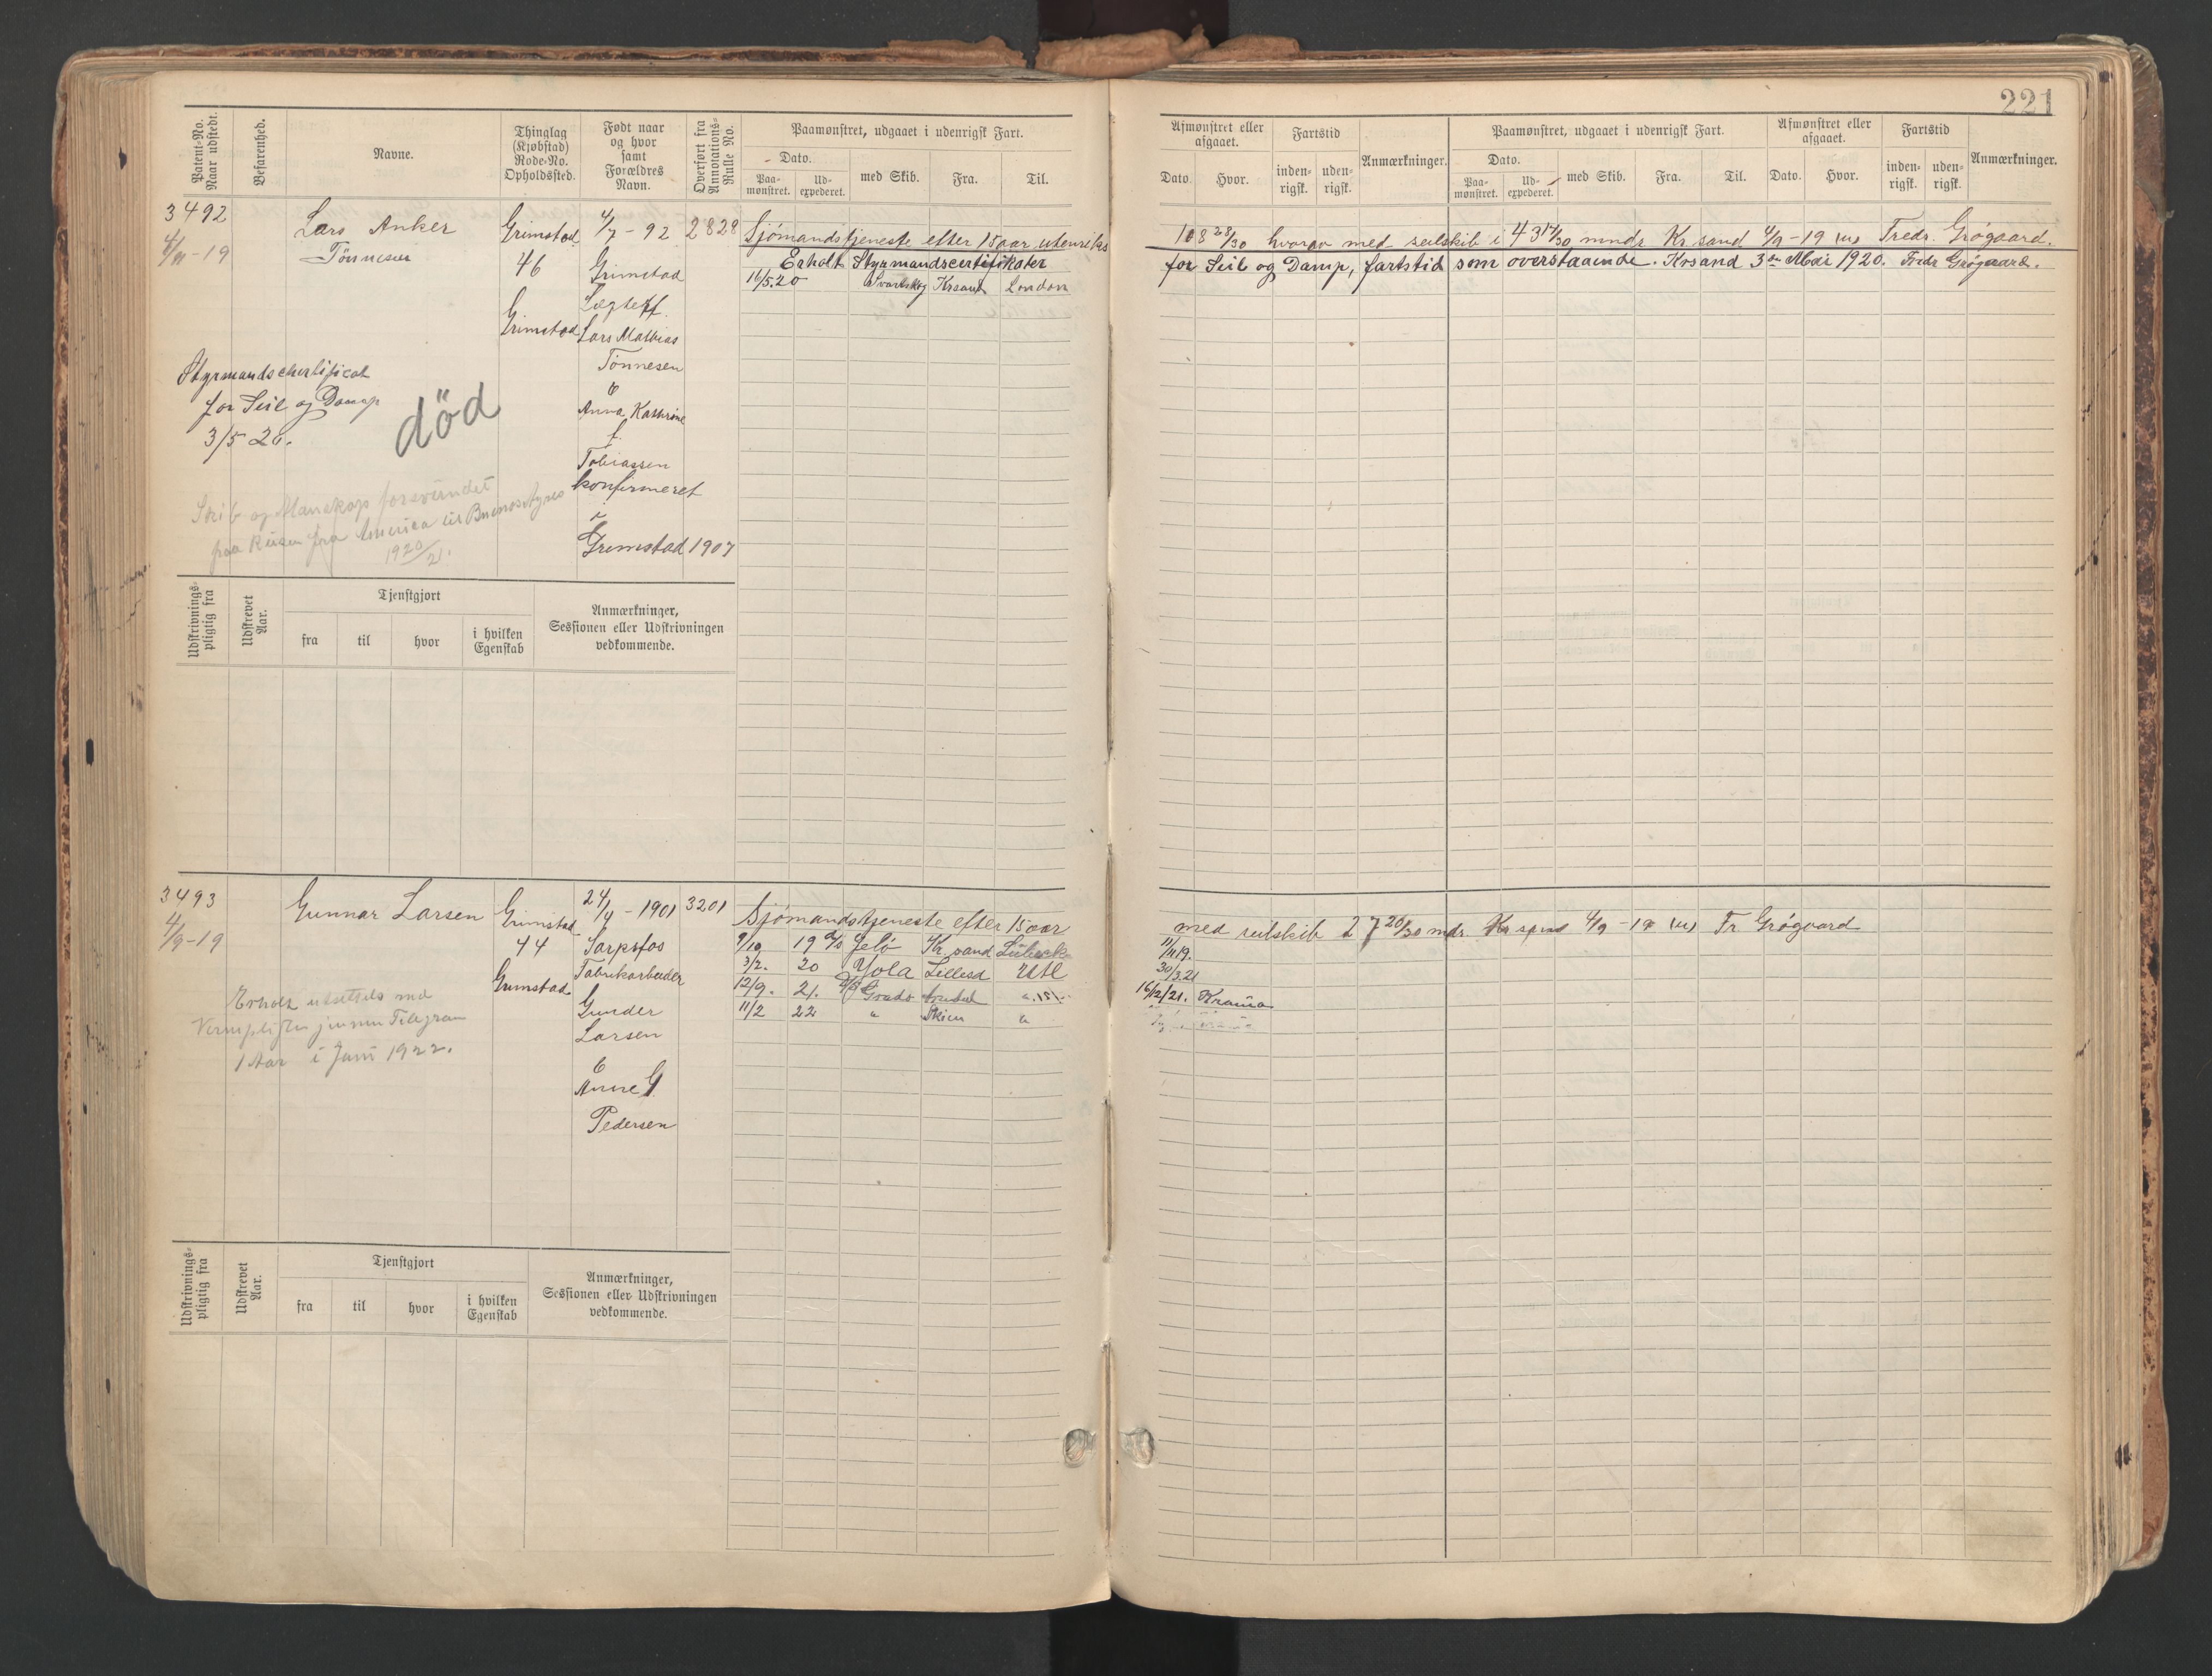 221
Patent-No.
Naar udstedt.
Befarenhed.
Navne.
Thinglag
(Kjøbstad)
Rode-No.
Opholdssted.
Født naar
og hvor
samt
Forældres
Navn.
Overført fra
Annotations-
Rulle No.
Paamønstret, udgaaet i udenrigsk Fart.
Dato.
Paa-
mønstret.
Ud-
expederet.
med Skib.
Fra.
Til.
Afmønstret eller
afgaaet.
Dato.
Hvor.
Fartstid
inden-
rigsk.
uden-
rigsk.
Anmærkninger.
Paamønstret, udgaaet i udenrigsk Fart.
Dato.
Paa-
mønstret.
Ud-
expederet.
med Skib.
Fra.
Til.
Afmønstret eller
afgaaet.
Dato.
Hvor.
Fartstid
inden-
rigsk.
uden-
rigsk.
Anmærkninger.
3492
4/9-19
Lars Anker
Tönnesen
Grimstad
46
Grimstad
4/7-92
Grimstad
Lars Mathias
Tönnesen
&
Anna Kathrine
f.
Tobiassen
konfirmeret
i
Grimstad 1907
2828
Sjömandstjeneste efter 15 aar utenriks
108 28/30 hvorav med seilskib i 43 17/30 mndr Kr.sand 4/9-19 Fredr. Grøgaard.
Erholt Styrmandscertifikater
for Seil og Damp, fartstid som overstaaende. Krsand 3die Mai 1920. Fredr Grøgaard.
11/5.20 Svartskog Krsand London
Styrmandscertificat
for Seil og Damp
3/5 20.
död
Skib og Mandskap forsvundet
paa Reisen fra America til Buenos Ayres
1920/21.
Udskrivnings-
pligtig fra
Udskrevet
Aar.
Tjenstgjort
fra
til
hvor
i hvilken
Egenskab
Anmærkninger,
Sessionen eller Udskrivningen
vedkommende.
3493
4/9-19
Gunnar Larsen
Grimstad
44
Grimstad
24/4-1901
Sarpsfos
Fabrikarbeider
Gunder
Larsen
&
Anne G
Pedersen
3201
Sjömandstjeneste efter 15 aar
med seilskib 27 20/30 mdr Krsand 4/9-19 Fr Grøgaard
9/10 19 Jelö Kr.sand Lübeck
11/11 19.
3/2. 20 Yola Lillesd Utl
30/3.21
12/9. 21. Grado
16/12/21. Krania
11/2 22 " Skien "
Erholt utsættelse med
Vernepligten
1 Aar i Juni 1922.
Udskrivnings-
pligtig fra
Udskrevet
Aar.
Tjenstgjort
fra
til
hvor
i hvilken
Egenskab
Anmærkninger,
Sessionen eller Udskrivningen
vedkommende.